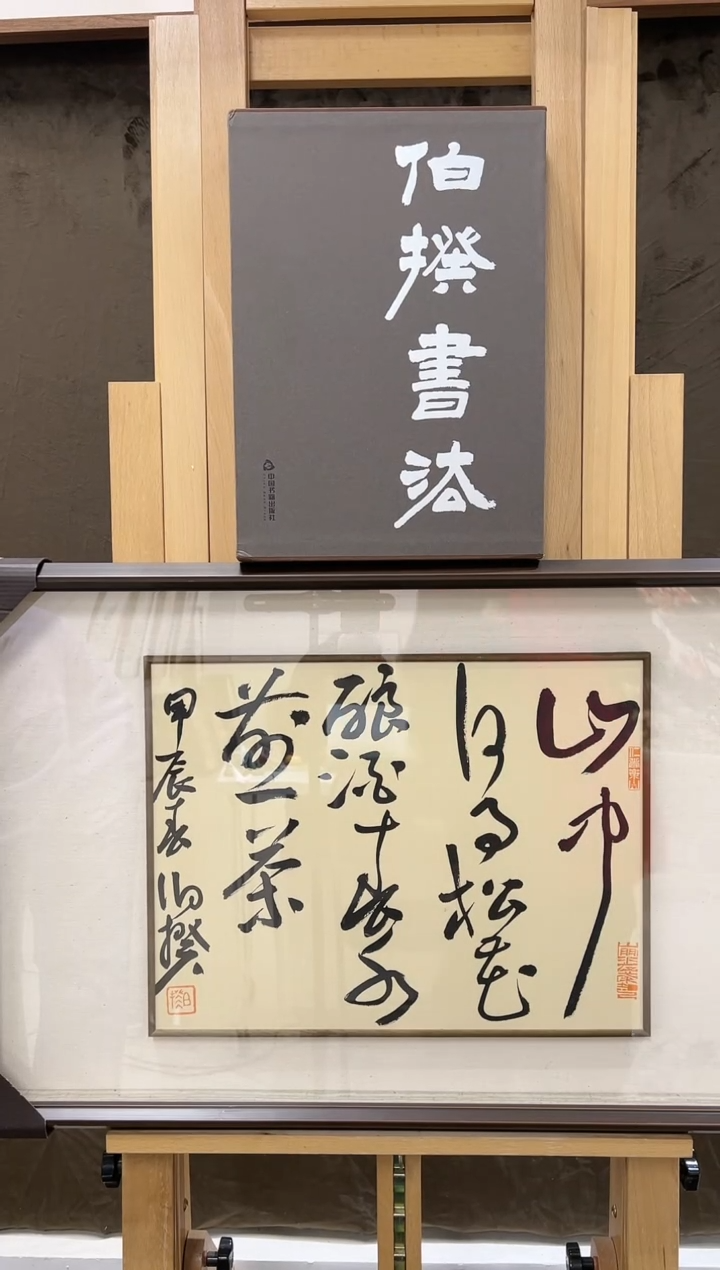 伯揆書法
中国书籍出版社
山中
何事松花
酿酒春水
煎茶
甲辰春伯揆